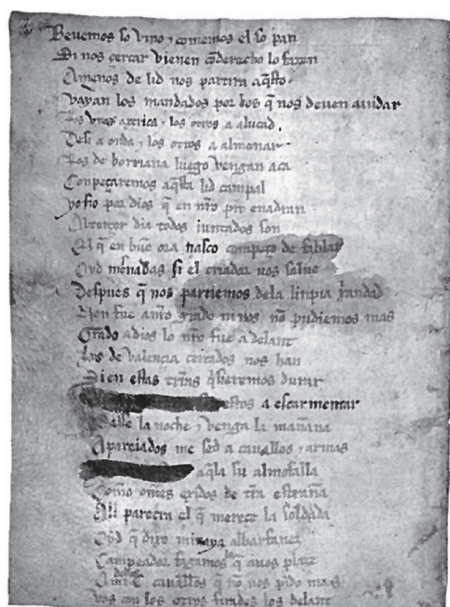 Beuemos so vino ⁊ comemos el so pan
Si nos çercar vienen cõ derecho lo fazen
Amenos de lid nos partira aq̃sto
Vayan los mandados por los q̃ nos deuen aiudar
Los vnos axerica ⁊ los otros a alucad
Desi a onda ⁊ los otros a almenar
Los de borriana luego vengan aca
Conpeçaremos aq̃sta lid campal
Yo fio por dios q̃ en nr̃o pro enadran
Al terçer dia todos iuntados son
El q̃ en buẽ ora nasco compeço de fablar
Oyd mesnadas si el criador uos salue
Despues q̃ nos partiemos dela linpia xandad
Non fue a nr̃o grado ni nos nõ pudiemos mas
Grado a dios lo nr̃o fue adelant
Los de valencia cercados nos han
Si en estas tr̃ras q̃sieremos durar
estos a escarmentar
Passe la noche ⁊ venga la mañana
Apareiados me sed a cauallos ⁊ armas
aq̃la su almofalla
Commo omes exidos de tr̃a estraña
Ali parezra el q̃ merece la soldada
Oyd q̃ dixo minaya albarfanez
Campeador fagamos lo q̃ auos plaze
A mi dedes C caualleros q̃ no uos pido mas
Vos con los otros firades los delant